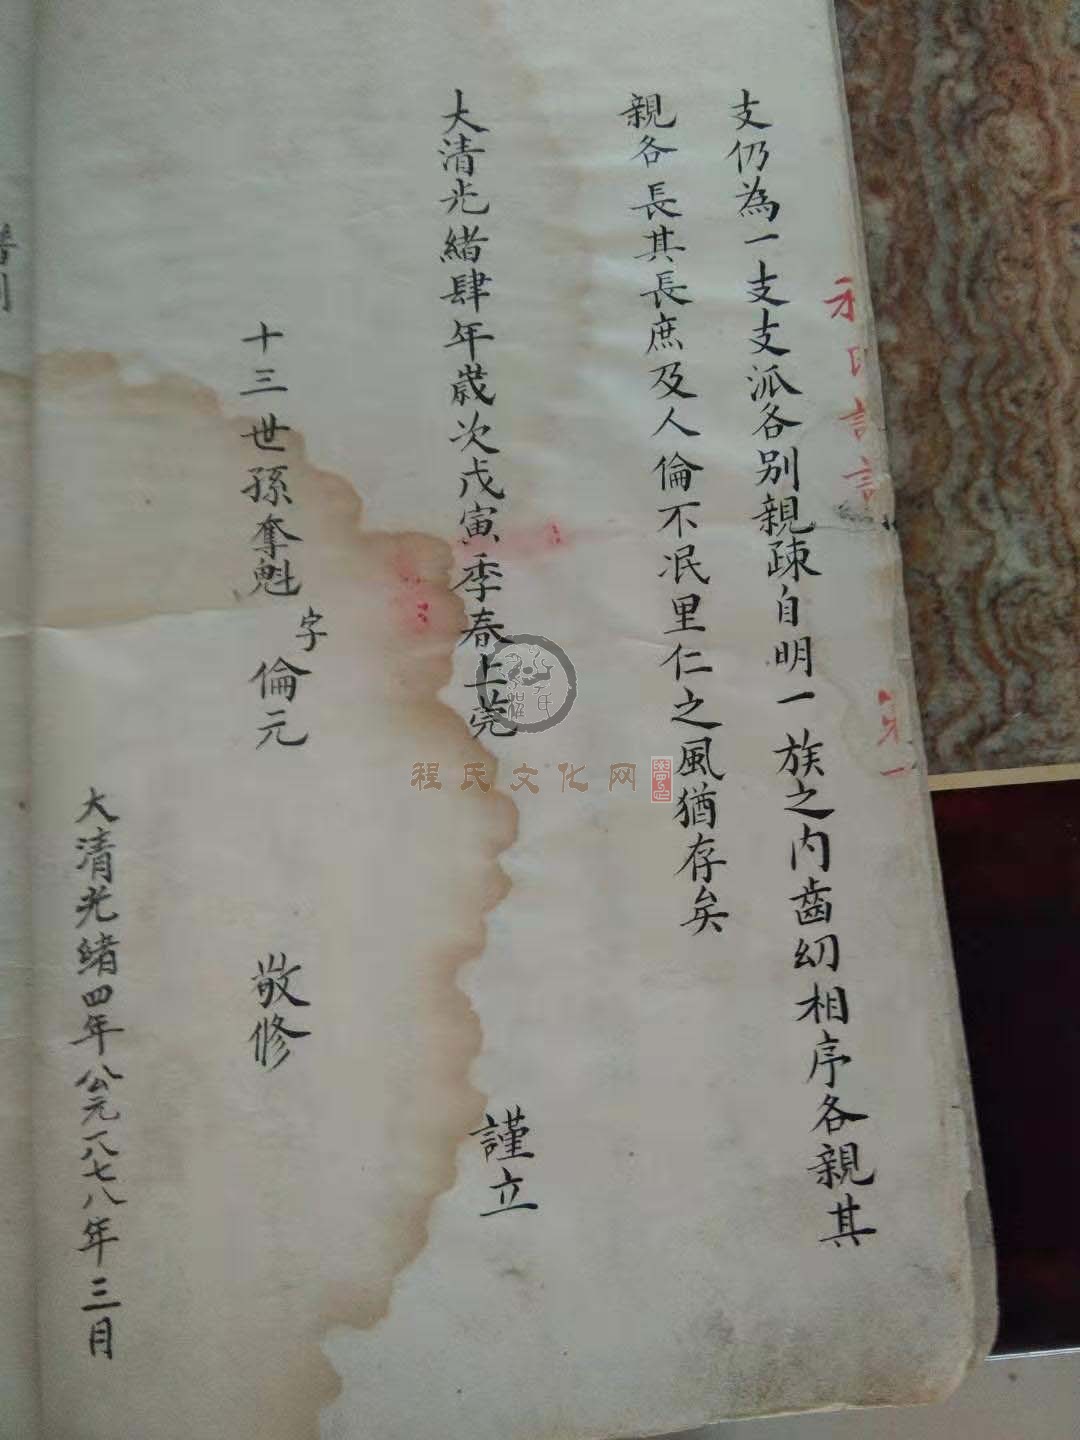 支仍為一支支派各别親疎自明一族之内齒幼相序各親其
親各長其長庶及人倫不泯里仁之風猶存矣
大清光緒肆年歲次戊寅季春上莞 謹立
十三世孫奪魁 字 倫元 敬修
大清光绪四年公元一八七八年三月
程氏文化网